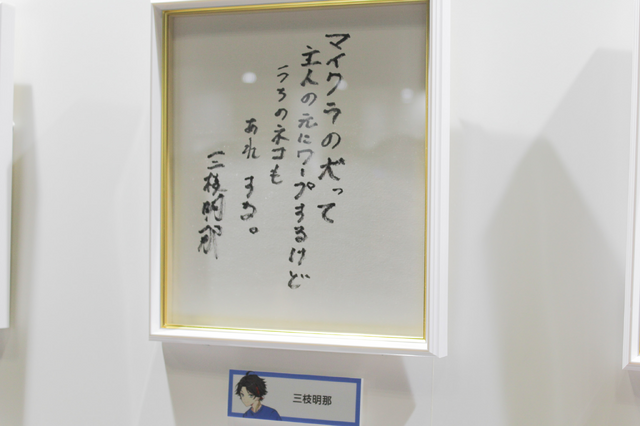 マイクラの犬って
主人の元にワープするけど
うちのネコも
あれ する。
三枝明那
三枝明那